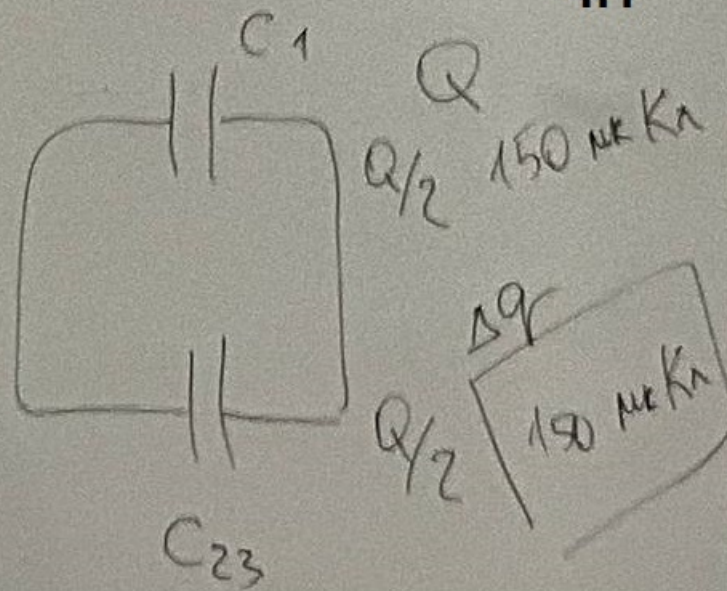 C1
Q
Q/2 150 мкКл
Δq
Q/2 150 мкКл
C23